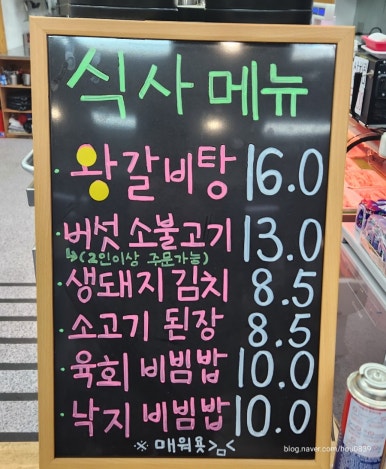 식사 메뉴
· 왕갈비탕 16.0
· 버섯 소불고기 13.0
↳(2인이상 주문가능)
· 생돼지 김치 8.5
· 소고기 된장 8.5
· 육회 비빔밥 10.0
· 낙지 비빔밥 10.0
※ 매워욧>_<